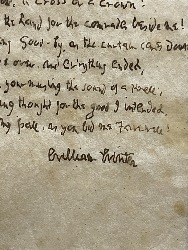 A Cross or a Crown!
the Hand for the comrade beside me!
ing Good-By, as the curtain comes Down
over and Everything ended,
your music the sound of a Knell,
ing thought for the good I intended,
as you bid me Farewell!
William Winter